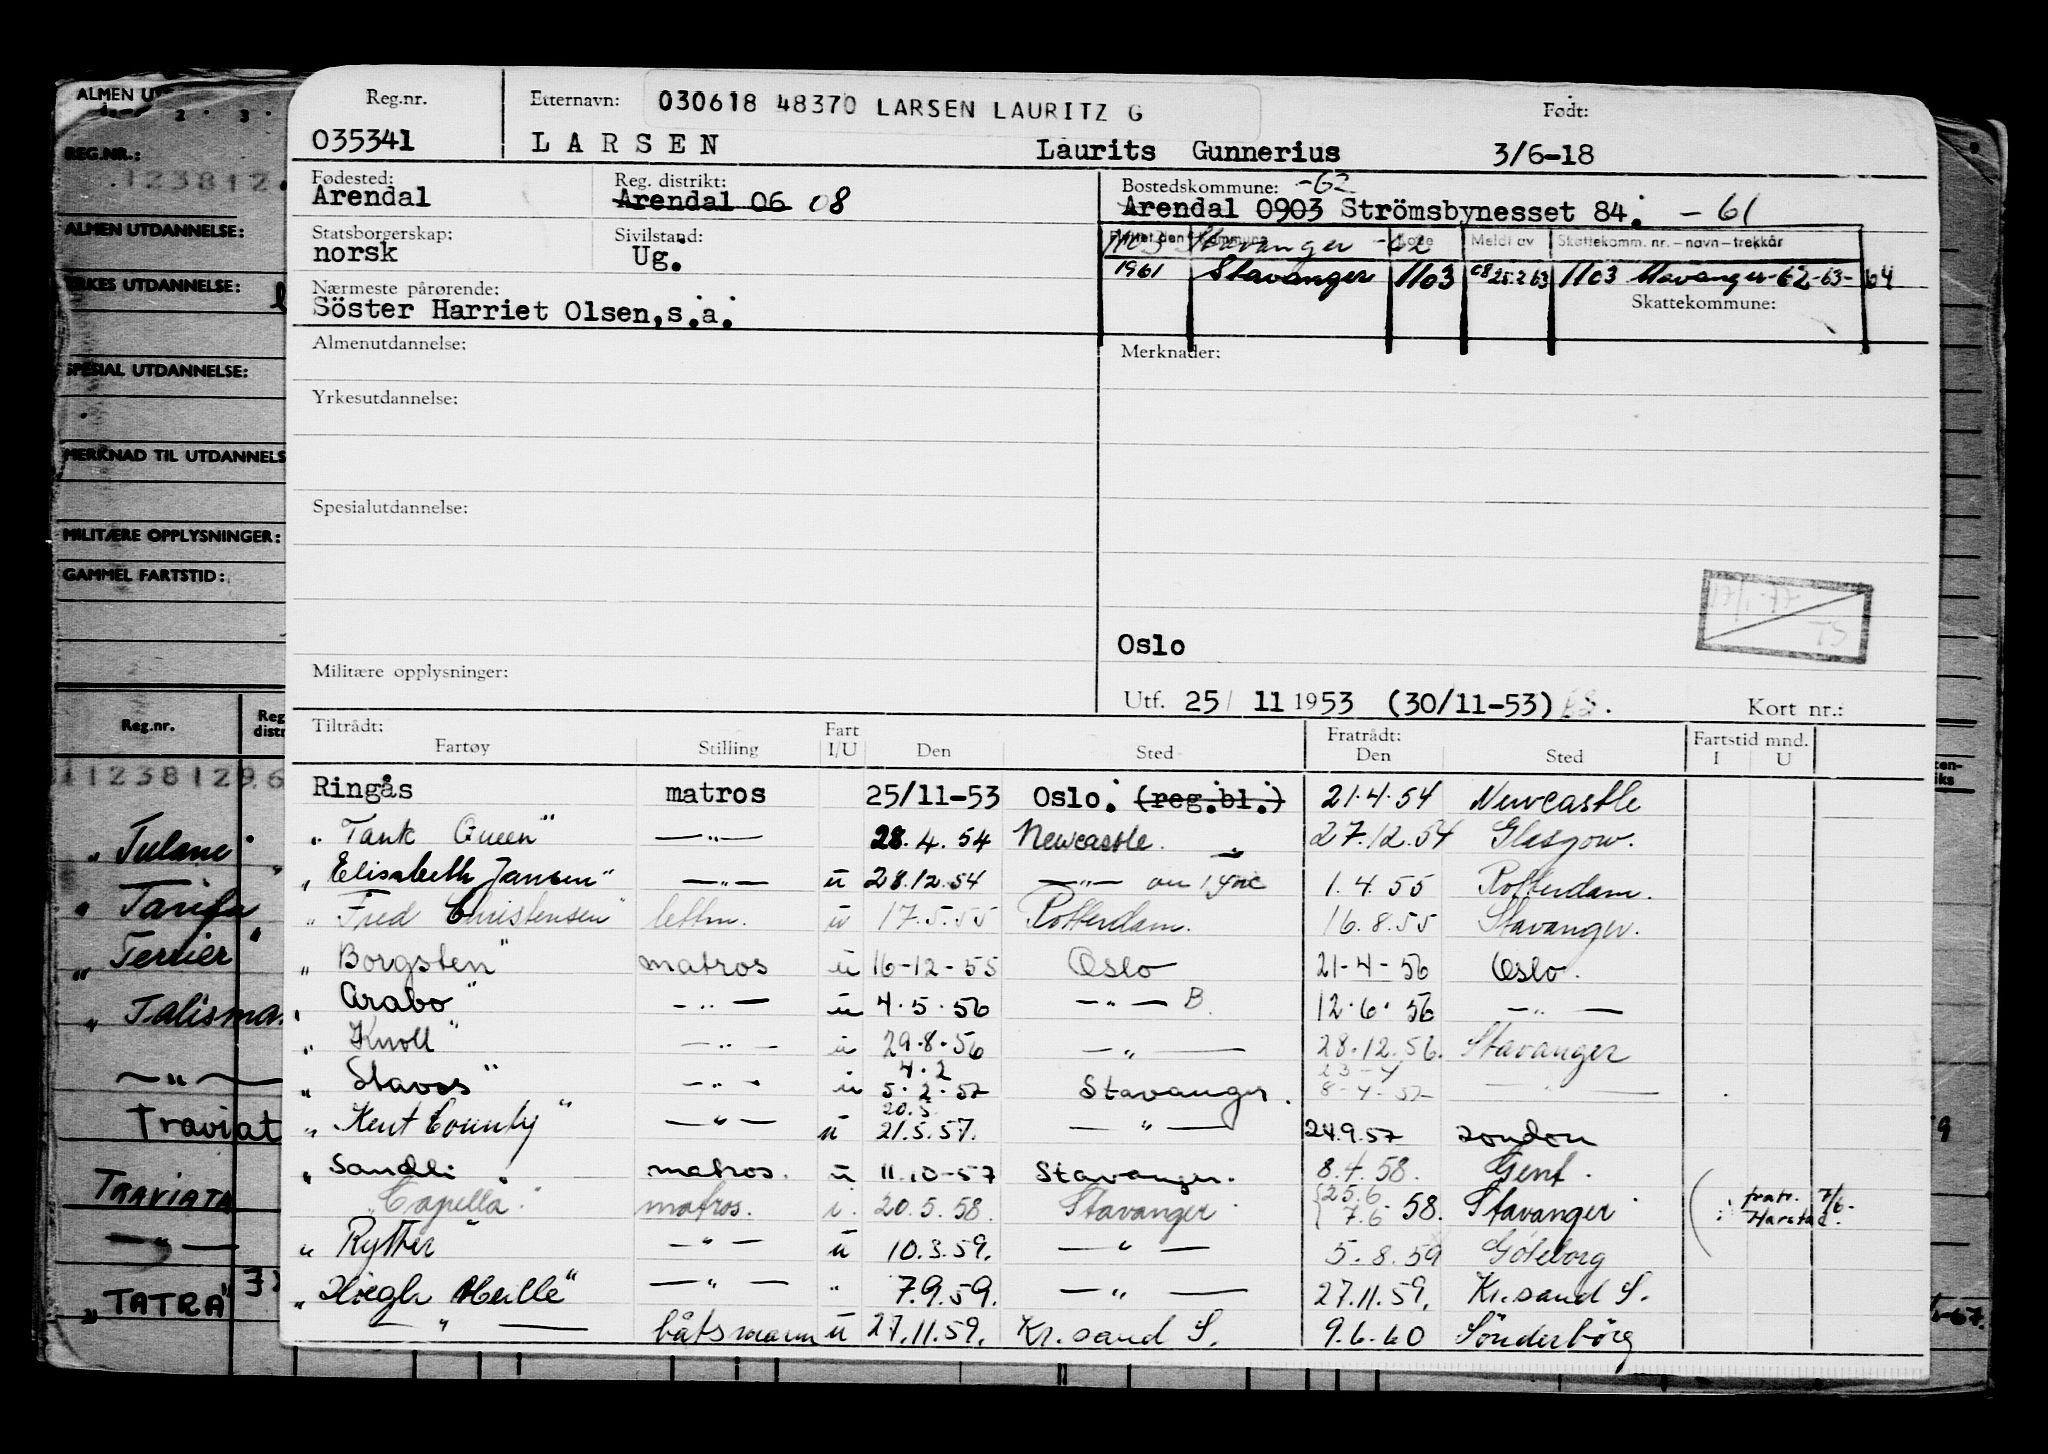 Reg.nr. Etternavn: 030618 48370 LARSEN LAURITZ G Født:
035341 LARSEN Laurits Gunnerius 3/6-18
Fødested: Reg. distrikt: Bostedskommune: -62
Arendal Arendal 06 08 Arendal 0903 Strömsbynesset 84. -61
Statsborgerskap: Sivilstand: 1103 Stavanger -62 Meldt av Skattekomm. nr.-navn-trekkår
norsk Ug. 1961 Stavanger 1103 08 25.2.63 1103 Stavanger-62-63-64
Nærmeste pårørende: Skattekommune:
Söster Harriet Olsen,s.a.
Almenutdannelse: Merknader:
Yrkesutdannelse:
Spesialutdannelse:
17/1-77
TS
Oslo
Militære opplysninger:
Utf. 25/ 11 1953 (30/11-53) Kort nr.:
Tiltrådt: Fart Fratrådt: Fartstid mnd.
Fartøy Stilling I/U Den Sted Den Sted I U
Ringås matros 25/11-53 Oslo. (reg.bl.) 21.4.54 Newcastle
"Tank Queen" —"— 28.4.54 Newcastle. 27.12.54 Glasgow.
"Elisabeth Jansen" —"— u 28.12.54 —"— on Tyne 1.4.55 Rotterdam.
"Fred Christensen" lettm. u 17.5.55 Rotterdam. 16.8.55 Stavanger.
"Borgsten" matros u 16-12-55 Oslo 21-4-56 Oslo.
"Arabo" —"— u 4.5.56 —"— B. 12.6.56 —"—
"Knoll" —"— u 29.8.56 —"— 28.12.56. Stavanger
4.2 23-4
"Stavos" —"— u 5.2.57 Stavanger. 8-4-57 —"—
20.5
"Kent County" —"— u 21.5.57. —"— 24.9.57 London
"Sandli" matros. u 11.10-57 Stavanger. 8.4.58. Gent.
"Capella" matros. i. 20.5.58. Stavanger 25.6 7.6 58. Stavanger (fratr. 7/6- Harstad.
"Rytter" —"— u 10.3.59. —"— 5.8.59 Göteborg
"Höegh Merlle" —"— " 7.9.59. —"— 27.11.59. Kr.sand S.
—"— båtsmann u 27.11.59. Kr.sand S. 9.6.60 Sönderbörg
REG.NR.:
123812
ALMEN UTDANNELSE:
YRKES UTDANNELSE:
SPESIAL UTDANNELSE:
MERKNAD TIL UTDANNELS
MILITÆRE OPPLYSNINGER:
GAMMEL FARTSTID:
Reg.nr. Reg. distr
11238129.6
"Tulane"
"Tarifa"
"Terrier"
"Talisma
—"—
Traviat
TRAVIATA
—"—
"TATRA"